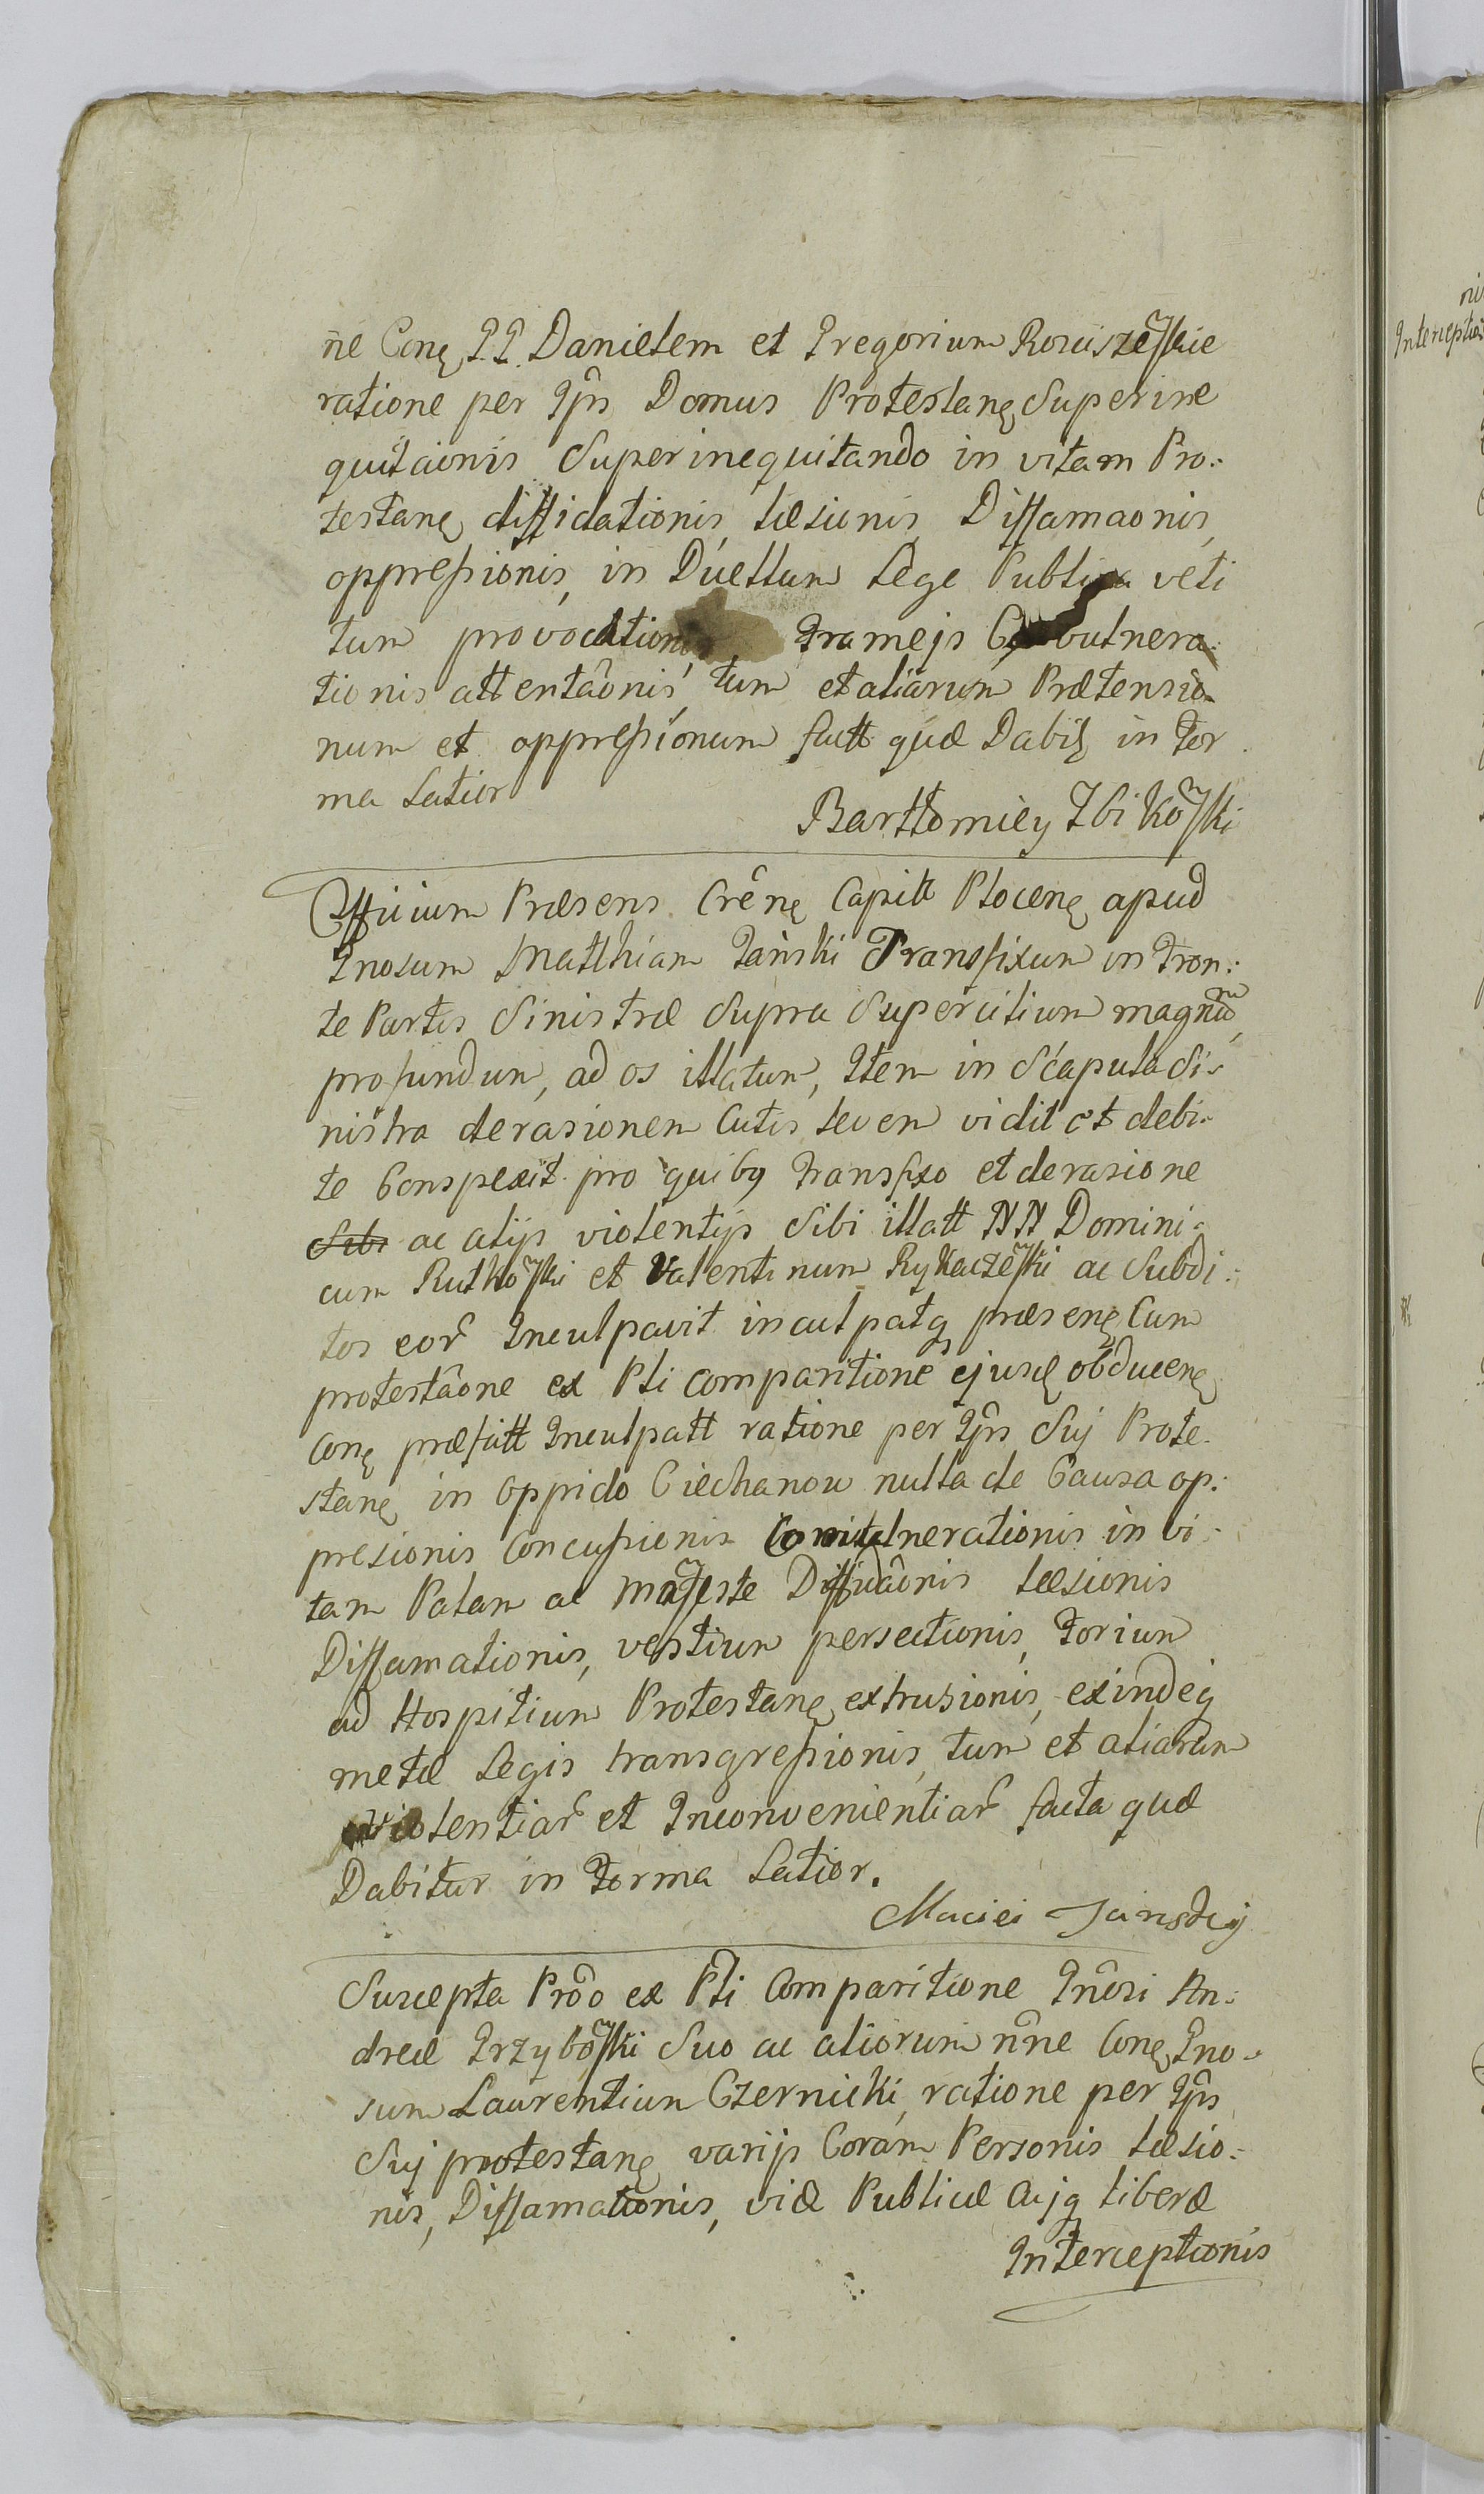 ne Conę GG Danielem et Gregorium Rosciszewskie
ratione per Ipīs Domus Protestanę Superine
quitaionis Superinequitando in vitam Pro:
testanę diffidationis, læsionis, Diffamaonis,
oppressionis, in Duellum Lege Publica veti
tum provocationis Framejs Convulnera:
tionis attentaônis, tum et aliarum Prætensio
num et oppressionum factt quæ Dabitꝫ in For
ma Latiori
Bartłomiey Zbikowski
Officium Præsens Crênę Capitt Plocenę apud
Gnosum Matthiam Janski Transfixum in Fron:
te Partis Sinistræ Supra Supercilium magnum,
profundum, ad os illatum, Item in Scapula Si:
nistra derasionem Cutis levem vidit et debi:
te Conspexit. pro quibꝫ transfixo et derasione
Sibi ac alijs violentijs Sibi illatt NN Domini:
cum Rutkowski et Valentinum Rykaczewski ac Subdi:
tos eor̃ Inculpavit inculpatqꝫ præsenę Cum
protestâone ex Pti comparitione ejusdę obducenę
Conę præfatt Inculpatt ratione per Ipīs Suj Prote
stanę in Oppido Ciechanow nulla de Causa op:
presionis Concussionis Convulnerationis in vi:
tam Palam ac manifeste Diffidâonis læsionis
Diffamationis, vestium persectionis, Forium
ad Hospitium Protestanę extrusionis, exindeqꝫ
metæ Legis transgressionis, tum et aliarum
violentiar̃ et Inconvenientiar̃ facta quæ
Dabitur in Forma Latior.
Maciei Janskij
Suscepta Prôo ex Pti Comparitione Gnôsi An:
dreæ Grzybowski Suo ac aliorum nñe Conę Gno:
sum Laurentium Czernicki, ratione per Ipīs
Suj protestanę varijs Coram Personis læsio:
nis, Diffamationis, viæ Publicæ Cujqꝫ liberæ
Interceptionis